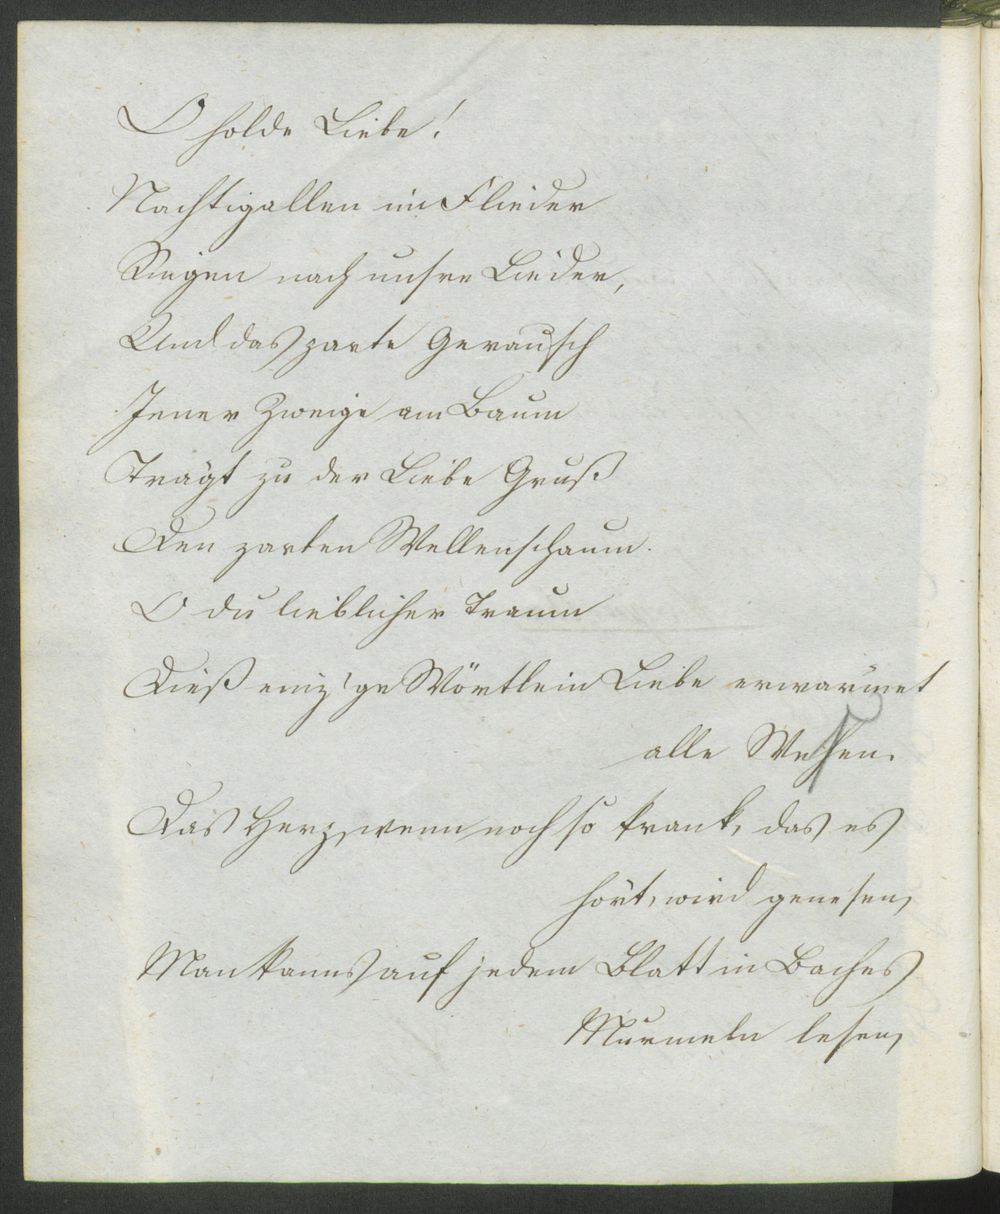 O holde Liebe!
Nachtigallen im Flieder
Singen nach unsre Lieder,
Und das zarte Geräusch
Jener Zweige am Baum
Trägt zu der Liebe Gruß
Den zarten Wellenschaum.
O du lieblicher Traum
Dieß einz'ge Wörtlein Liebe erwärmet
alle Wesen.
Das Herz, wenn noch so krank, das es
hört, wird genesen,
Man kanns auf jedem Blatt in Baches
Murmeln lesen,